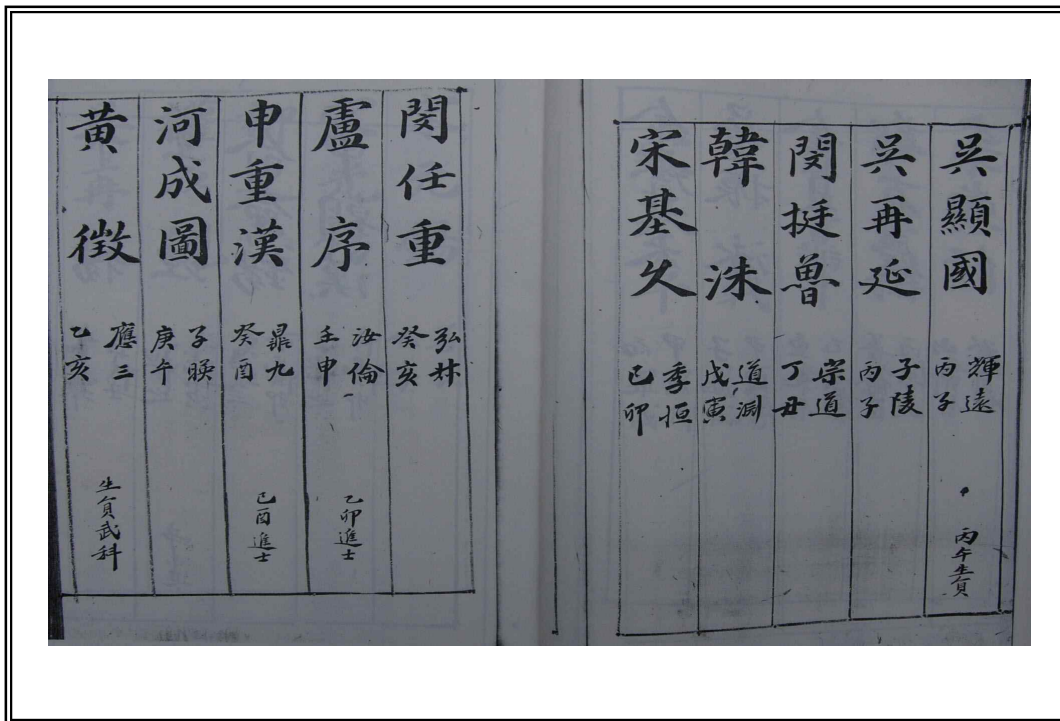 吳顯國
輝遠
丙子
丙午生員
吳再延
子陵
丙子
閔挺魯
崇道
丁丑
韓洙
道淵
戊寅
宋基久
季恒
己卯
閔任重
癸亥
盧序
汝倫
壬申
乙卯進士
申重漢
癸酉
己酉進士
河成圖
子暎
庚午
黃徵
應三
乙亥
生員武科